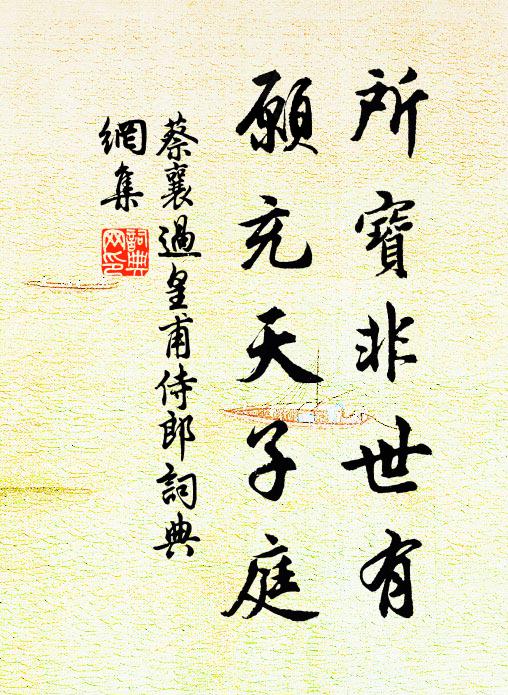 所寶非世有
願充天子庭
蔡襄過皇甫侍郎詞典
網集
詞典
网印